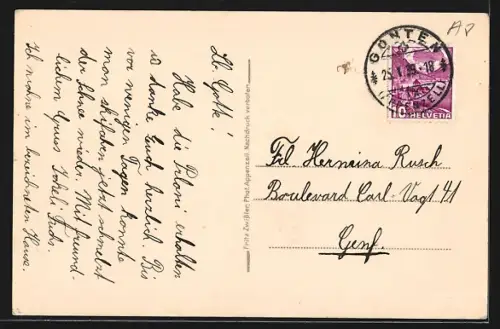 Lb. Gotte!
Habe die erhalten
u. danke Euch herzlich. Bis
vor wenigen Tagen konnte
man skifahren jetzt schmelzt
der Schnee wieder. Mit freund-
lichem Gruss Fuchs.
Ich wohne im bezeichneten Hause.
Fritz Zwißler, Phot. Appenzell. Nachdruck verboten.
GONTEN
(APPENZELL)
10 HELVETIA
Frl. Hermina Rusch
Boulevard Carl-Vogt 41
Genf.